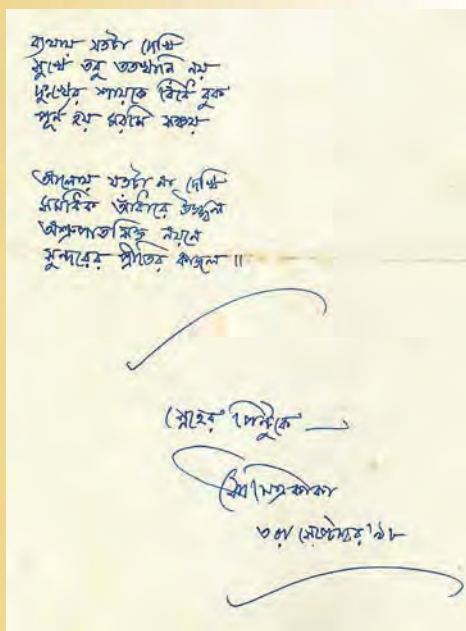 ব্যথায় যতটা দেখি
সুখে তবু ততখানি নয়
দুঃখের শায়কে বিঁধে বুক
পূর্ন হয় মরমি সঞ্চয়
আলোয় যতটা না দেখি
সমধিক আঁধারে উজ্জ্বল
অশ্রুপাতসিক্ত নয়নে
সুন্দরের প্রীতির কাজল ॥
স্নেহের পিন্টুকে
কাকা
৩রা সেপ্টেম্বর '৯৮